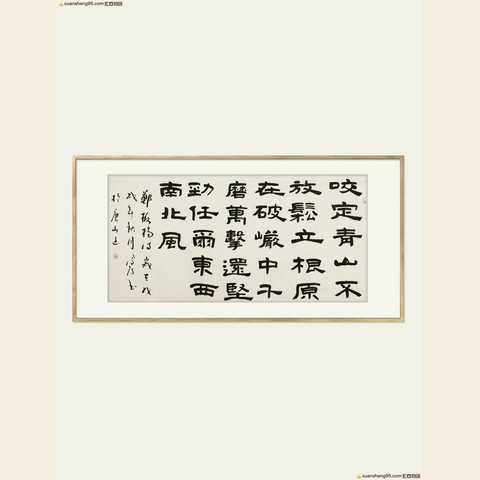 xuanshang95.com
咬定青山不
放鬆立根原
在破巖中千
磨萬擊還堅
勁任爾東西
南北風
鄭板橋詩
xuanshang95.com